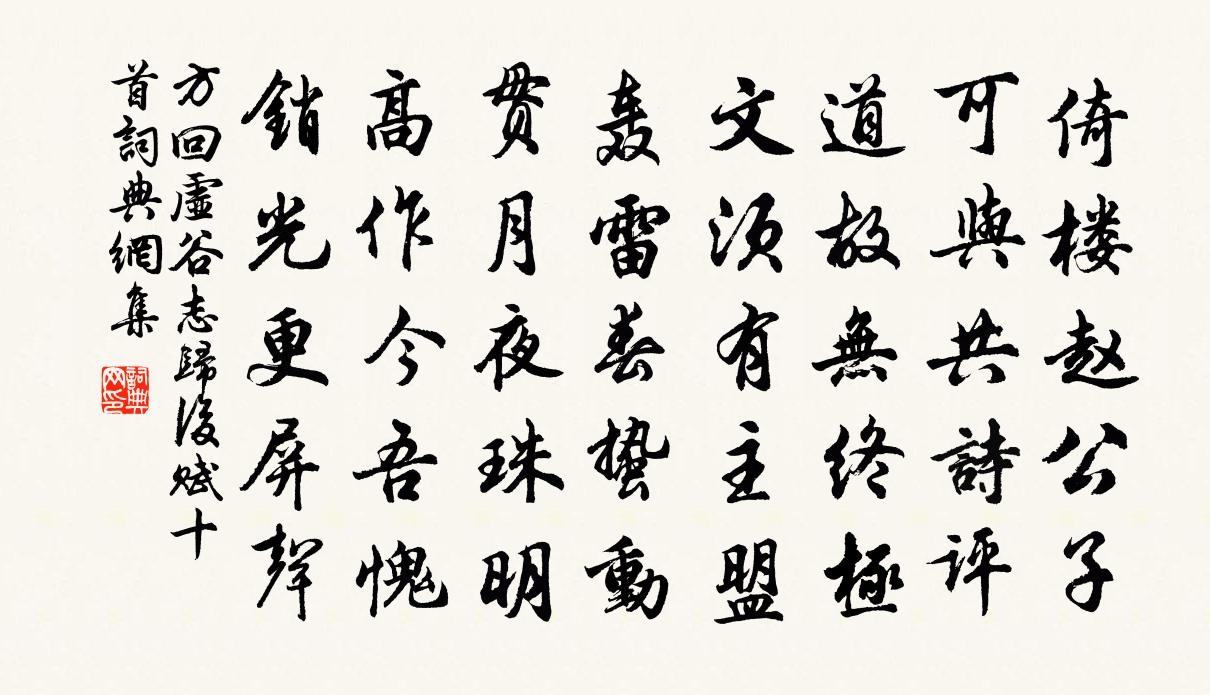 倚楼赵公子
可與共詩評
道故無终極
文须有主盟
轰雷春蛰動
贯月夜珠明
高作今吾愧
銷光更屏聲
方回虛谷志歸後赋十
首詞典網集
詞典
网印